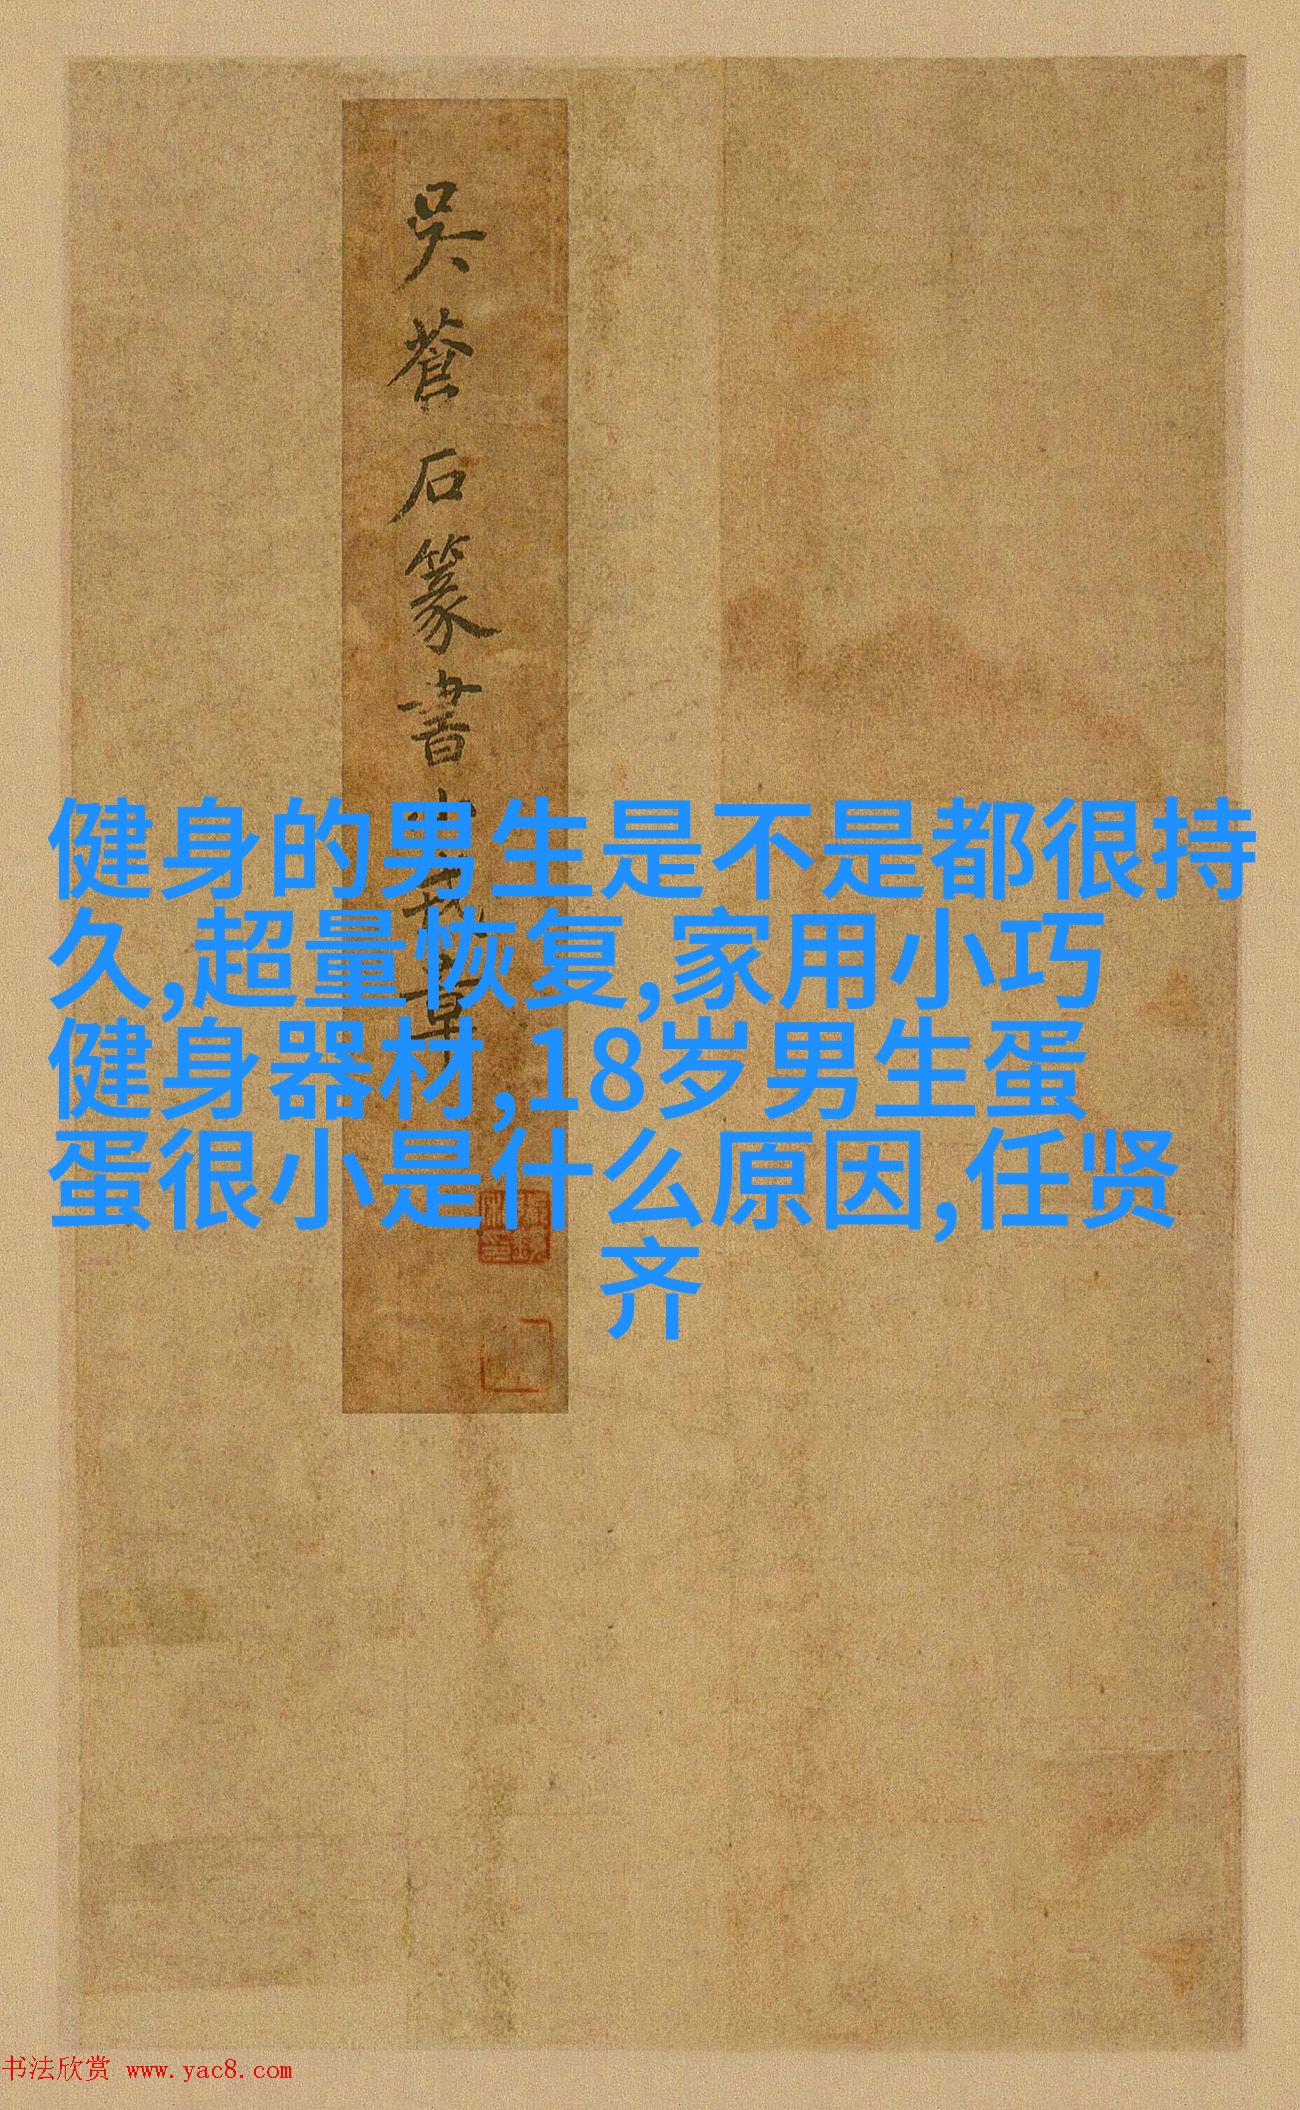 吳蒼石篆書出
章
健身的男生是不是都很持
久,超量恢复,家用小巧
健身器材,18岁男生蛋
蛋很小是什么原因,任贤
齐
书法欣赏 www.yac8.com